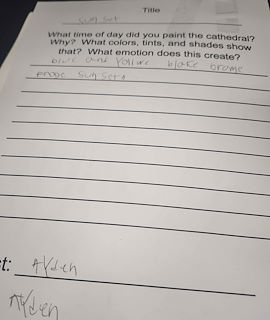 Title
sun set
What time of day did you paint the cathedral?
Why? What colors, tints, and shades show
that? What emotion does this create?
blue and
sun sets
t: Ayden
Ayden